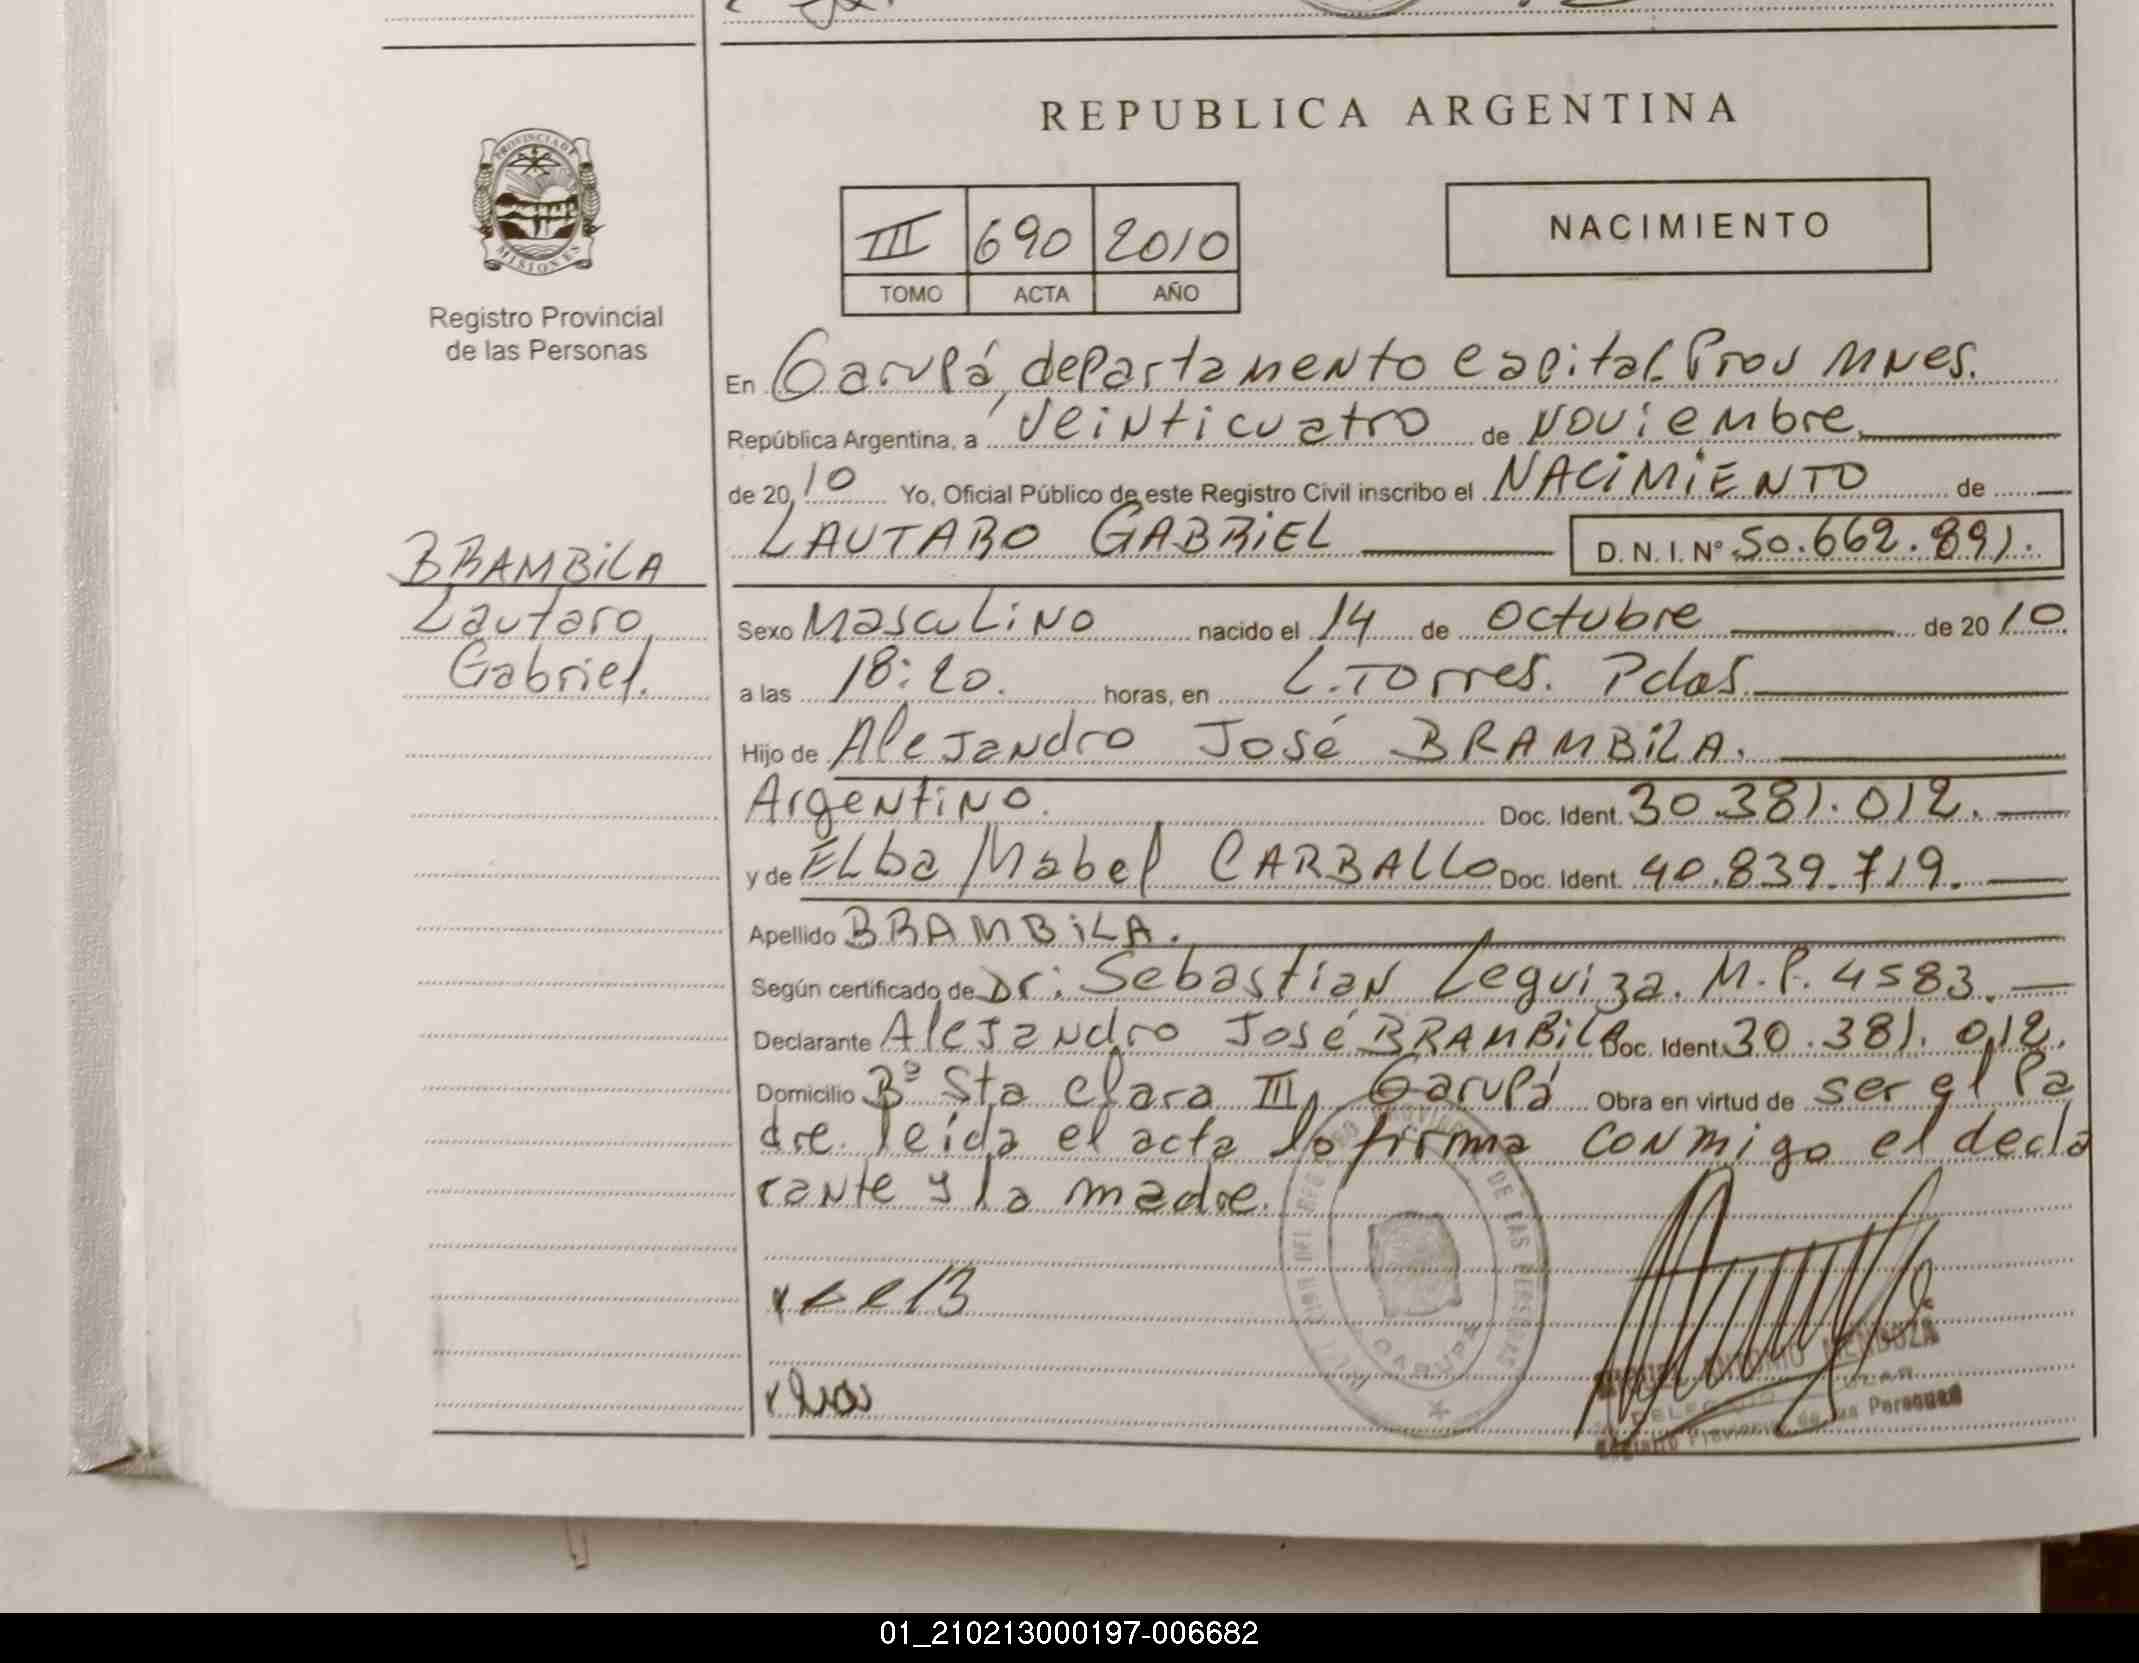 REPUBLICA ARGENTINA
PROVINCIA DE
MISIONES
Registro Provincial
de las Personas
III 690 2010
TOMO ACTA AÑO
NACIMIENTO
En Garupá, departamento capital. Prov Mnes.
República Argentina, a veinticuatro de Noviembre,
de 2010 Yo, Oficial Público de este Registro Civil inscribo el NACIMIENTO de
LAUTARO GABRIEL D. N. I. Nº 50.662.891.
BRAMBILA
Lautaro
Gabriel.
Sexo Masculino nacido el 14 de octubre de 2010
a las 18:20. horas, en L. Torres. Pdas.
Hijo de Alejandro José BRAMBILA.
Argentino. Doc. Ident. 30.381.012.
y de Elba Mabel CARBALLO Doc. Ident. 40.839.719.
Apellido BRAMBILA.
Según certificado de Dr: Sebastian Leguiza. M.P. 4583.
Declarante Alejandro José BRAMBILA Doc. Ident. 30.381.012.
Domicilio Bº Sta clara III, Garupá Obra en virtud de ser el Pa
dre. leída el acta lo firma conmigo el decla
rante y la madre.
DE LAS PERSONAS
GARUPA
ANTONIO MENDOZA
Registro Provincial de las Personas
01_210213000197-006682